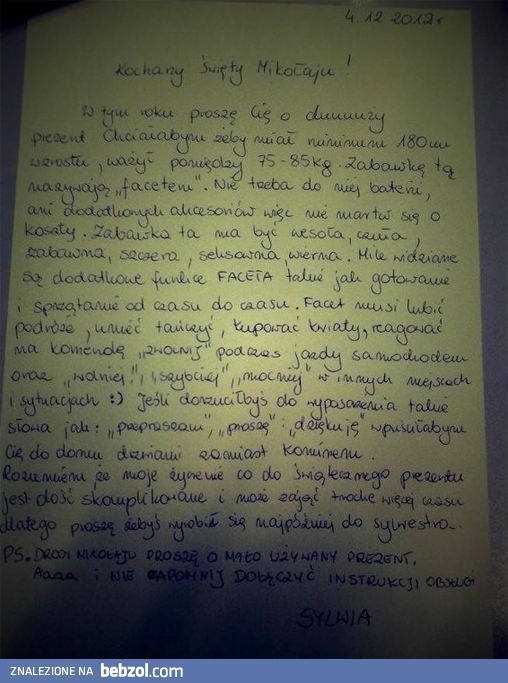 4.12.2012r
Kochany Święty Mikołaju!
W tym roku proszę Cię o duuuuży
prezent. Chciałabym żeby miał minimum 180cm
wzrostu, ważył pomiędzy 75-85kg. Zabawkę tą
nazywają „facetem". Nie trzeba do niej baterii,
ani dodatkowych akcesoriów więc nie martw się o
koszty. Zabawka ta ma być wesoła, czuła,
zabawna, szczera, seksowna, wierna. Mile widziane
są dodatkowe funkcje FACETA takie jak gotowanie
i sprzątanie od czasu do czasu. Facet musi lubić
podróże, umieć tańczyć, kupować kwiaty, reagować
na komendę „zwolnij" podczas jazdy samochodem
oraz „wolniej", „szybciej", „mocniej" w innych miejscach
i sytuacjach :) Jeśli dorzuciłbyś do wyposażenia takie
słowa jak: „przepraszam", „proszę" i „dziękuję" wpuściłabym
Cię do domu drzwiami zamiast kominem.
Rozumiem, że moje życzenie co do świątecznego prezentu
jest dość skomplikowane i może zająć trochę więcej czasu
dlatego proszę żebyś wyrobił się najpóźniej do sylwestra.
PS. DROGI MIKOŁAJU PROSZĘ O MAŁO UŻYWANY PREZENT.
Aaaa i NIE ZAPOMNIJ DOŁĄCZYĆ INSTRUKCJI OBSŁUGI
SYLWIA
ZNALEZIONE NA bebzol.com